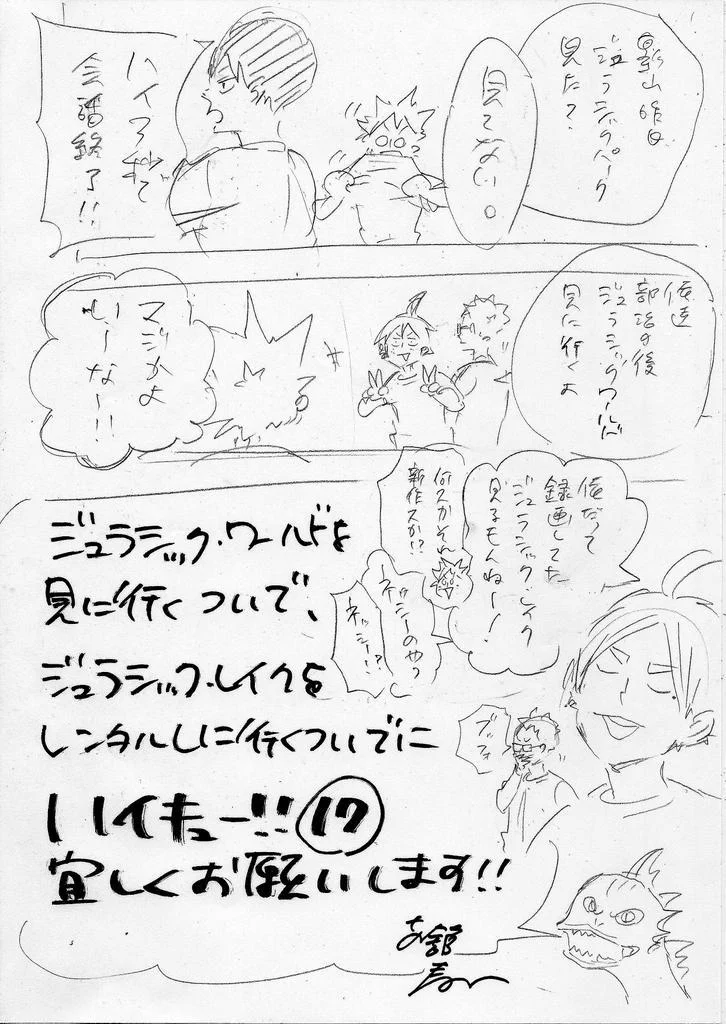 影山昨日
ジュラシックパーク
見た?
見てない。
ハイワぎて
会話終了!!
俺達
部活の後
ジュラシックワールド
見に行くよ
マジかよ
いーなー!!
俺だって
録画してた
ジュラシック・レイク
見るもんねー!
何スかそれ
新作スか!?
ネッシーのやつ
ネッシー!?
ブッフォ
ジュラシック・ワールドを
見に行くついで、
ジュラシック・レイクを
レンタルしに行くついでに
ハイキュー!!⑰
宜しくお願いします!!
古舘